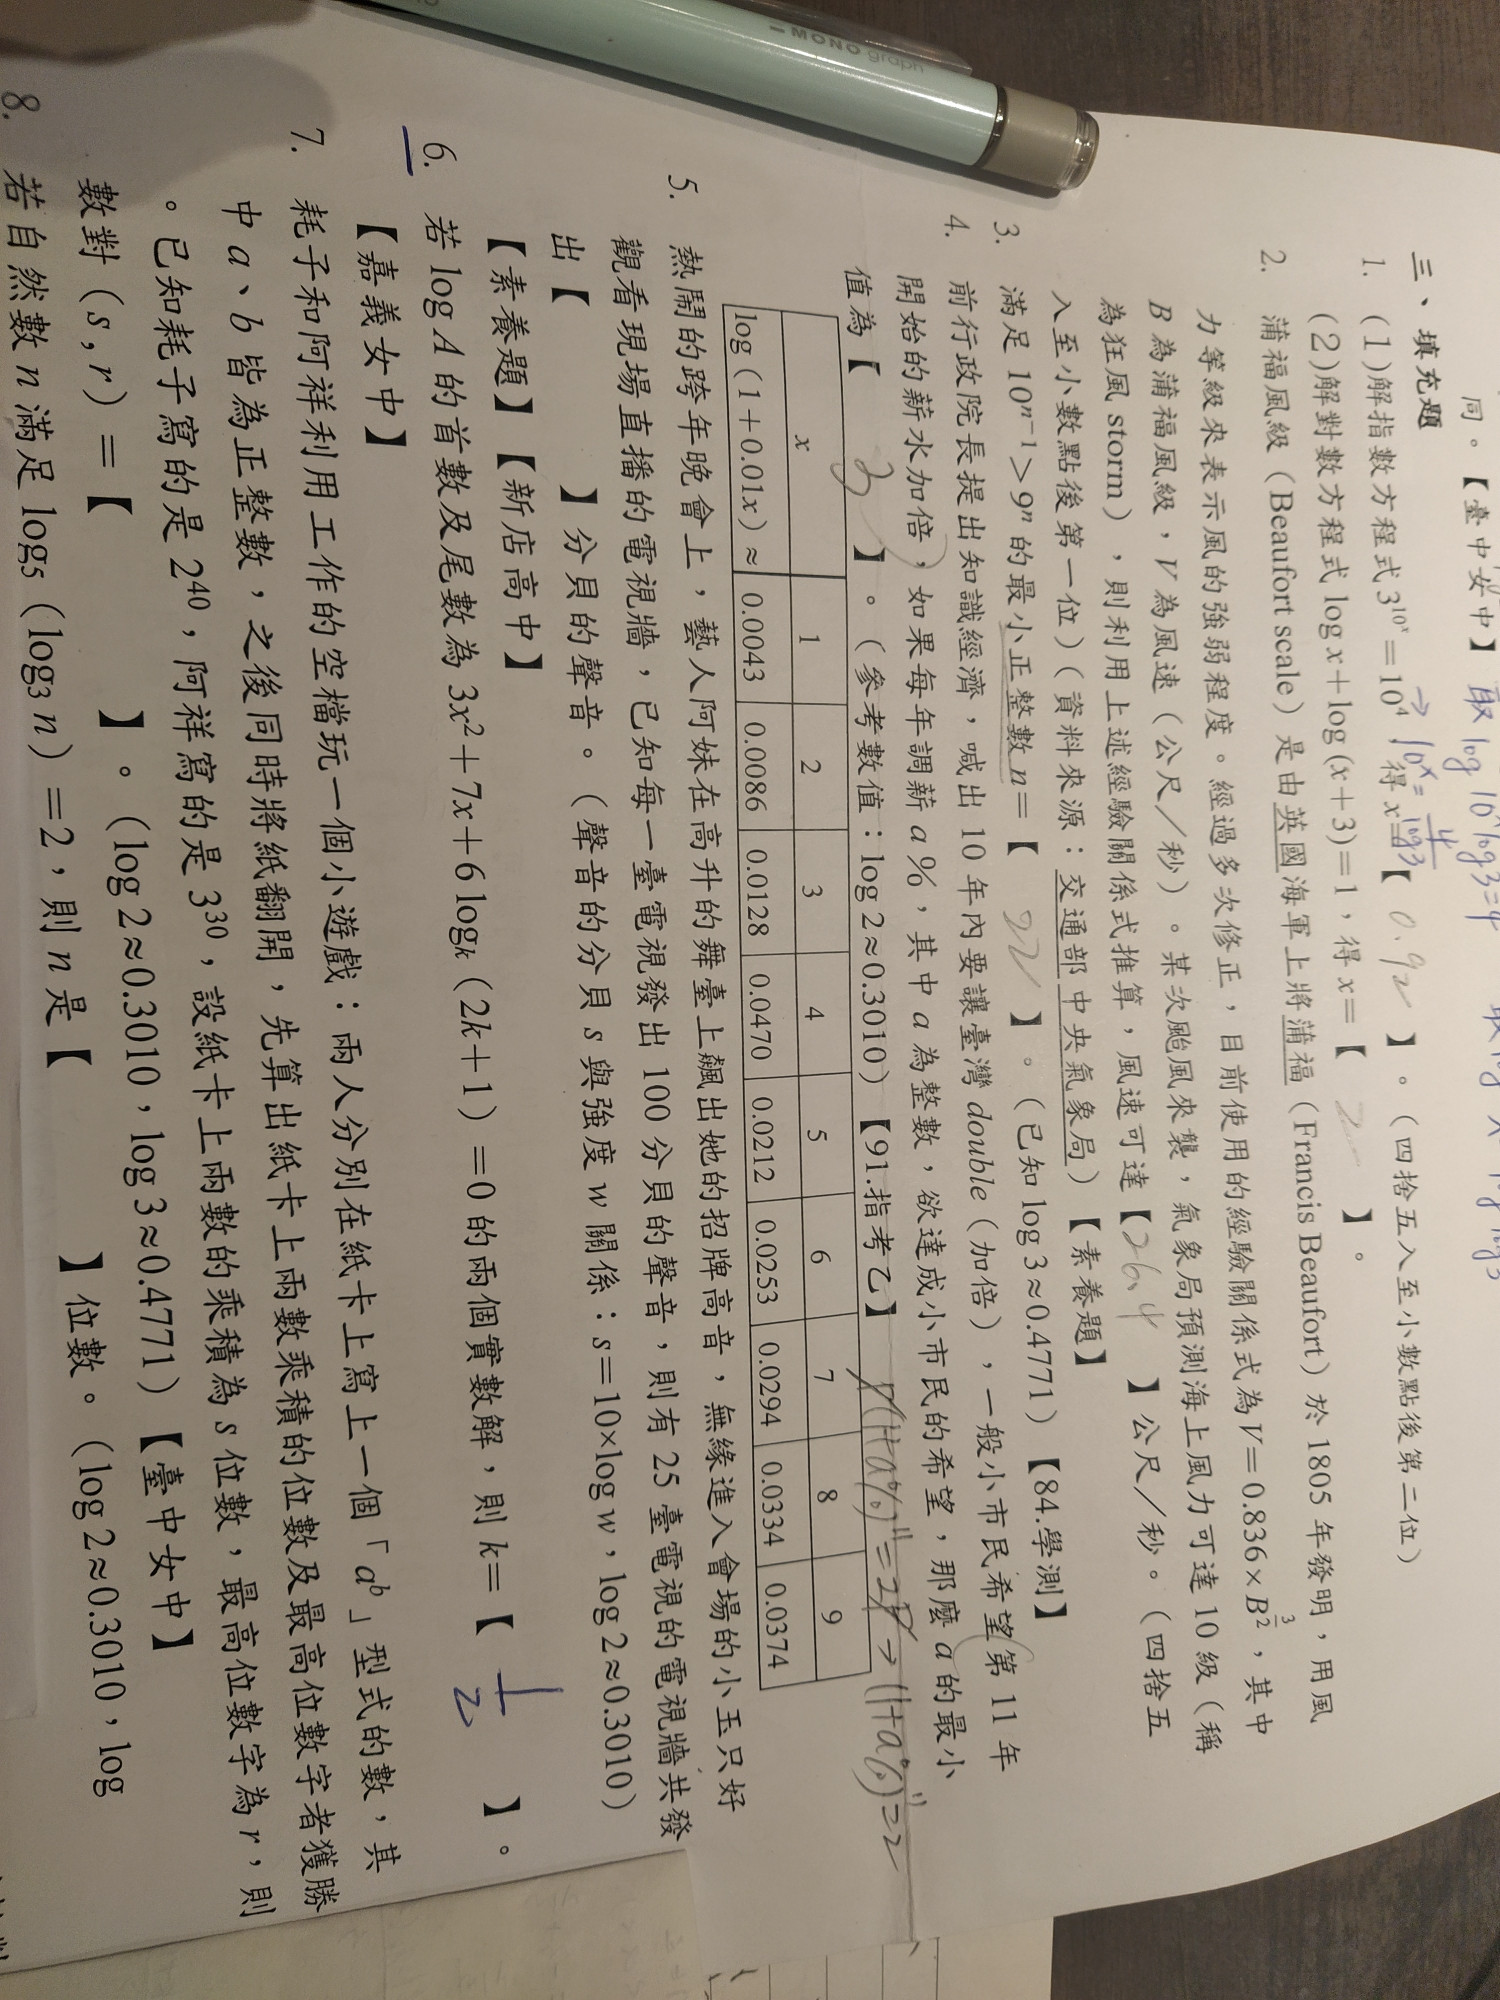 MONO graph
同。【臺中女中】 取log 10ˣlog3=4
三、填充題
1. (1)解指數方程式 3^{10^x}=10⁴,得 x=【 0.92 】。(四捨五入至小數點後第二位)
→ 10ˣ=4/log3
(2)解對數方程式 log x+log(x+3)=1,得 x=【 2 】。
2. 蒲福風級(Beaufort scale)是由英國海軍上將蒲福(Francis Beaufort)於 1805 年發明,用風
力等級來表示風的強弱程度。經過多次修正,目前使用的經驗關係式為 V=0.836×B^{3/2},其中
B 為蒲福風級,V 為風速(公尺/秒)。某次颱風來襲,氣象局預測海上風力可達 10 級(稱
為狂風 storm),則利用上述經驗關係式推算,風速可達【 26.4 】公尺/秒。(四捨五
入至小數點後第一位)(資料來源:交通部中央氣象局)【素養題】
3. 滿足 10ⁿ⁻¹>9ⁿ 的最小正整數 n=【 22 】。(已知 log 3≈0.4771)【84.學測】
4. 前行政院長提出知識經濟,喊出 10 年內要讓臺灣 double(加倍),一般小市民希望第 11 年
開始的薪水加倍,如果每年調薪 a%,其中 a 為整數,欲達成小市民的希望,那麼 a 的最小
值為【 】。(參考數值:log 2≈0.3010)【91.指考乙】
(1+a%)¹¹=2
x 1 2 3 4 5 6 7 8 9
log(1+0.01x)≈ 0.0043 0.0086 0.0128 0.0470 0.0212 0.0253 0.0294 0.0334 0.0374
5. 熱鬧的跨年晚會上,藝人阿妹在高升的舞臺上飆出她的招牌高音,無緣進入會場的小玉只好
觀看現場直播的電視牆,已知每一臺電視發出 100 分貝的聲音,則有 25 臺電視的電視牆共發
出【 】分貝的聲音。(聲音的分貝 s 與強度 w 關係:s=10×log w,log 2≈0.3010)
【素養題】【新店高中】
6. 若 log A 的首數及尾數為 3x²+7x+6 logₖ(2k+1)=0 的兩個實數解,則 k=【 1/2 】。
【嘉義女中】
7. 耗子和阿祥利用工作的空檔玩一個小遊戲:兩人分別在紙卡上寫上一個「aᵇ」型式的數,其
中 a、b 皆為正整數,之後同時將紙翻開,先算出紙卡上兩數乘積的位數及最高位數字者獲勝
。已知耗子寫的是 2⁴⁰,阿祥寫的是 3³⁰,設紙卡上兩數的乘積為 s 位數,最高位數字為 r,則
數對(s,r)=【 】。(log 2≈0.3010,log 3≈0.4771)【臺中女中】
8. 若自然數 n 滿足 log₅(log₃ n)=2,則 n 是【 】位數。(log 2≈0.3010,log